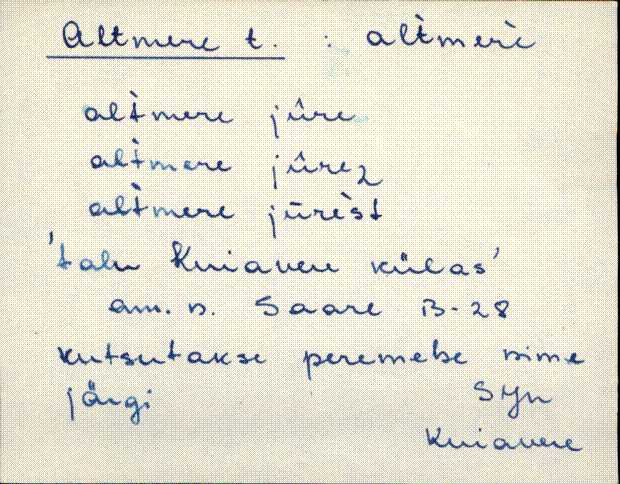 Altmere t. : al̀tmerè
al̀tmere jûre
al̀tmere jûrez
al̀tmere jūrèst
'talu Kuiavere külas'
am. n. Saare B-28
kutsutakse peremehe nime
järgi Syn
Kuiavere